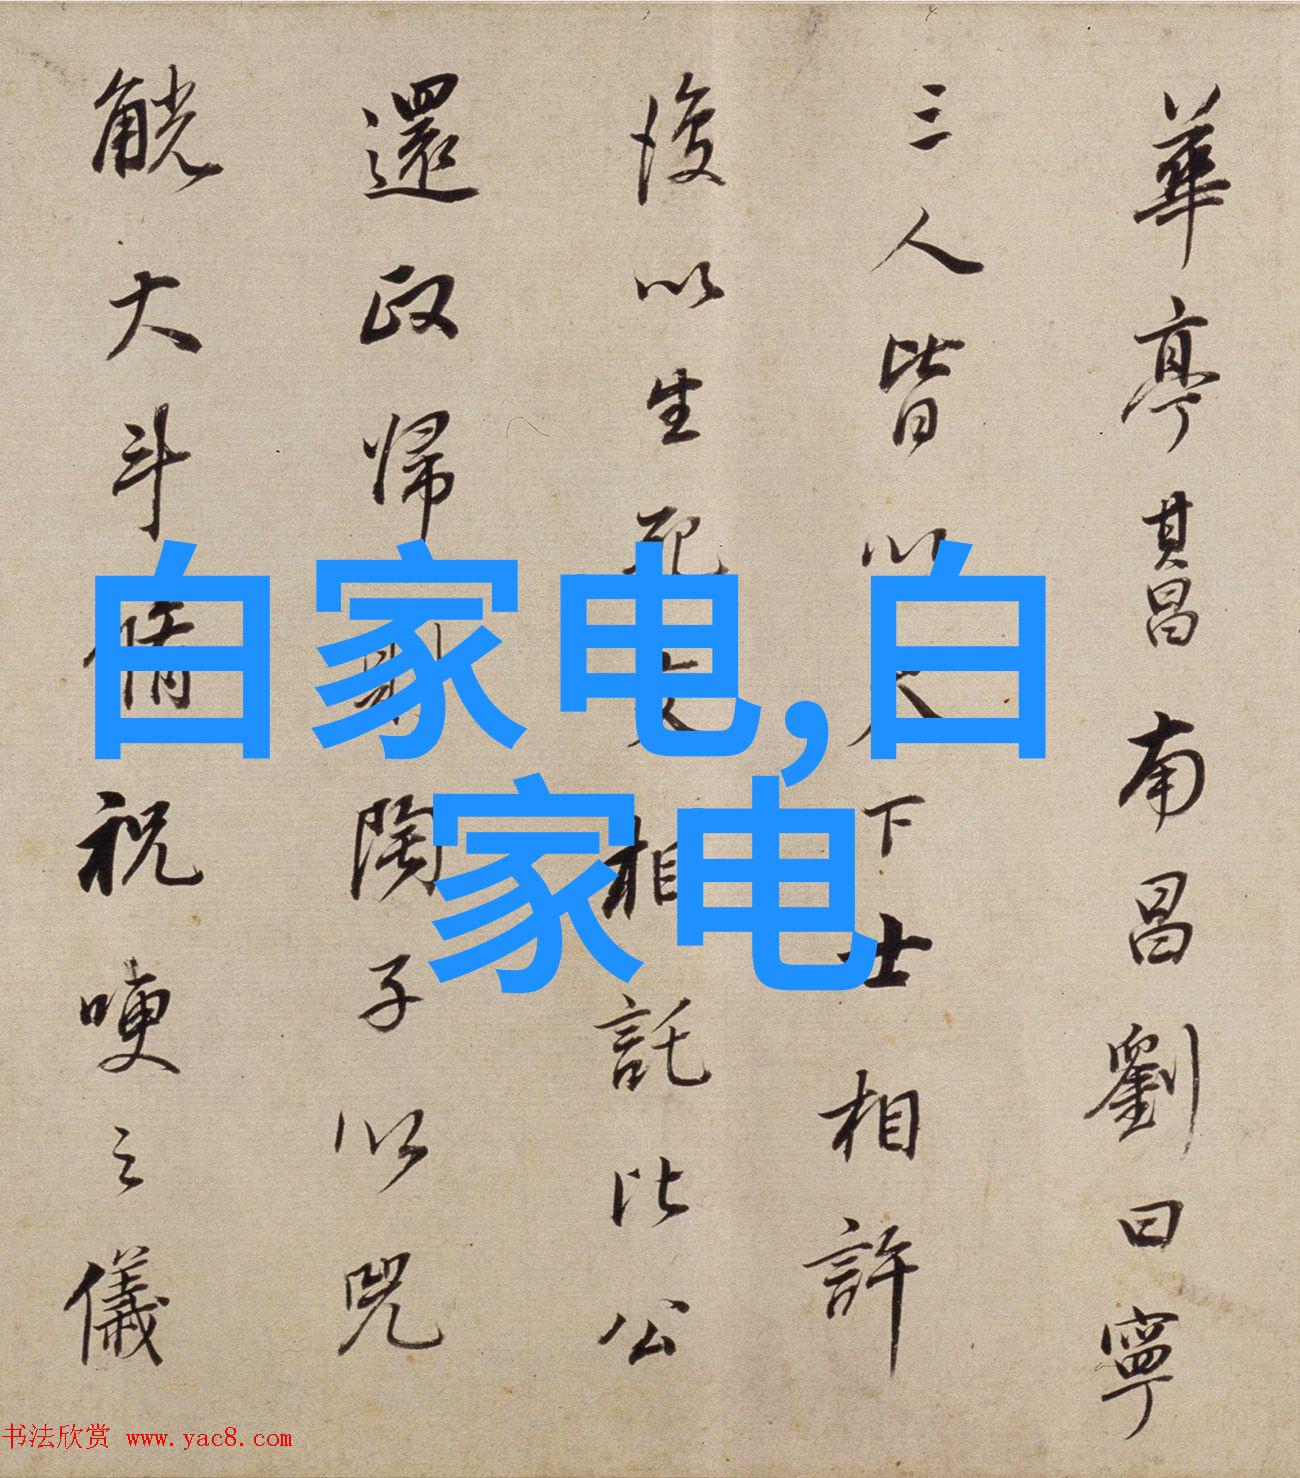 華亭其昌南昌劉曰寧
三人皆以天下士相許
後以生死交相託比公
還政歸 陶子以兕
觥大斗脩祝哽之儀
白家电,白
家电
书法欣赏 www.yac8.com